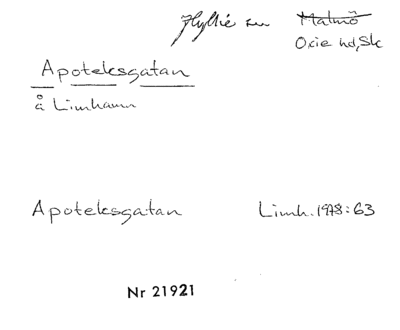 Hyllie sn Malmö
Oxie hd, Sk
Apoteksgatan
å Limhamn
Apoteksgatan Limh. 1978:63
Nr 21921